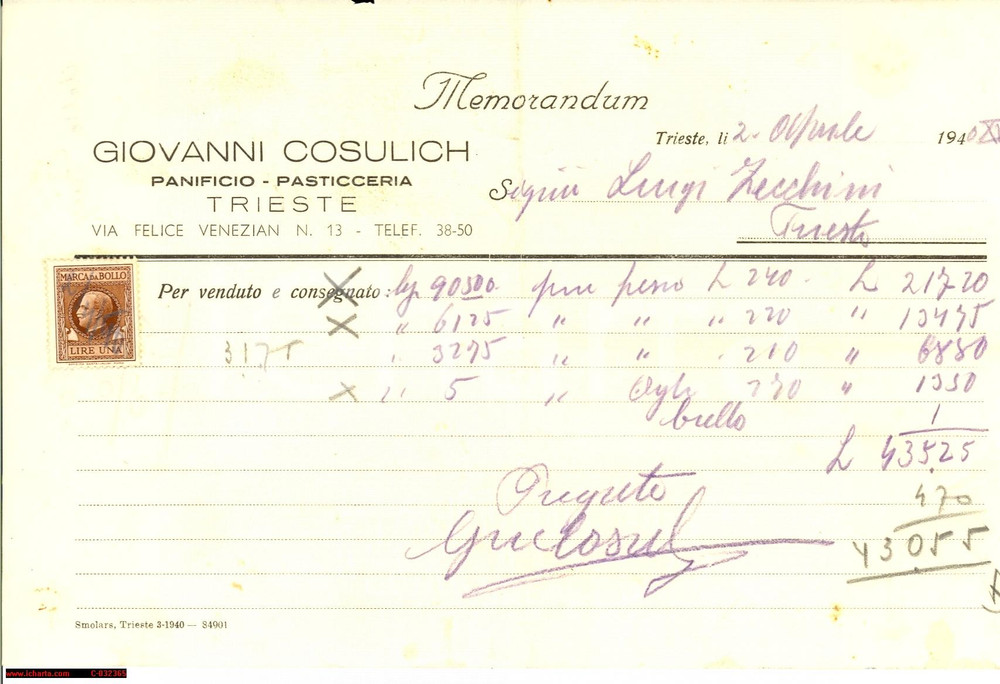 Memorandum
Trieste, li 2. Aprile 1940
GIOVANNI COSULICH
PANIFICIO - PASTICCERIA
TRIESTE
VIA FELICE VENEZIAN N. 13 - TELEF. 38-50
Signor Luigi Zecchini
Trieste
MARCA DA BOLLO
LIRE UNA
Per venduto e consegnato: kg. 90500 pane L 240 L 21720
" 6125 " " " 220 " 13475
3175 " 3275 " " 210 " 6880
" 5 " 270 " 1350
bollo 1
L 435.25
470
43055
Smolars, Trieste 3-1940 — 84901
www.icharta.com C-032365